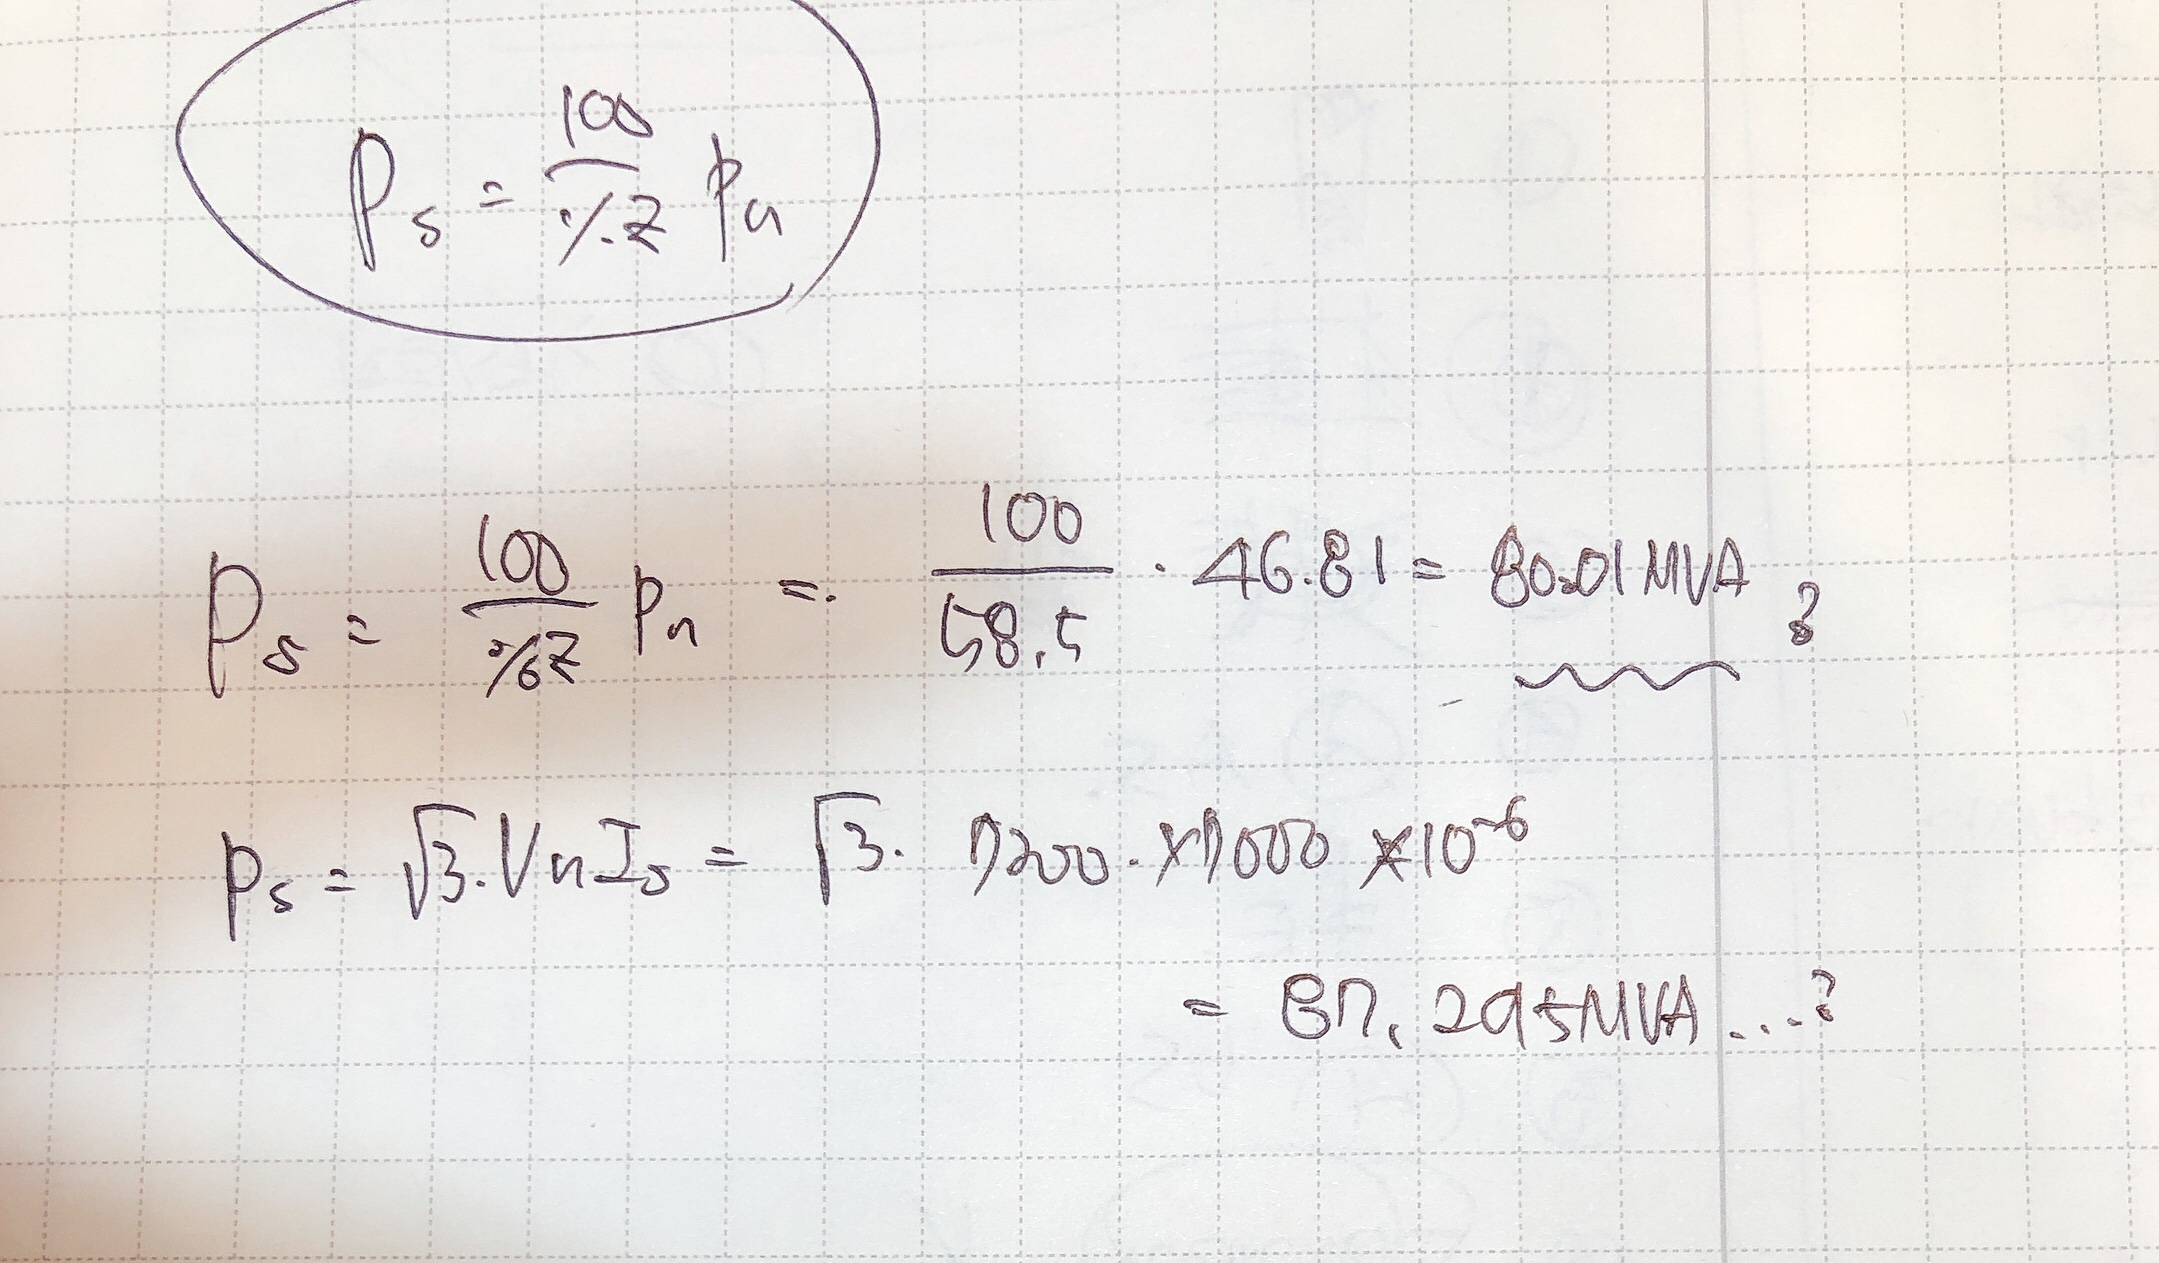 Ps = 100/%Z Pn
Ps = 100/%Z Pn = 100/58.5 · 46.81 = 80.01 MVA ?
Ps = √3·VnIs = √3· 7200·×7000 ×10^-6
= 87.295MVA ....?